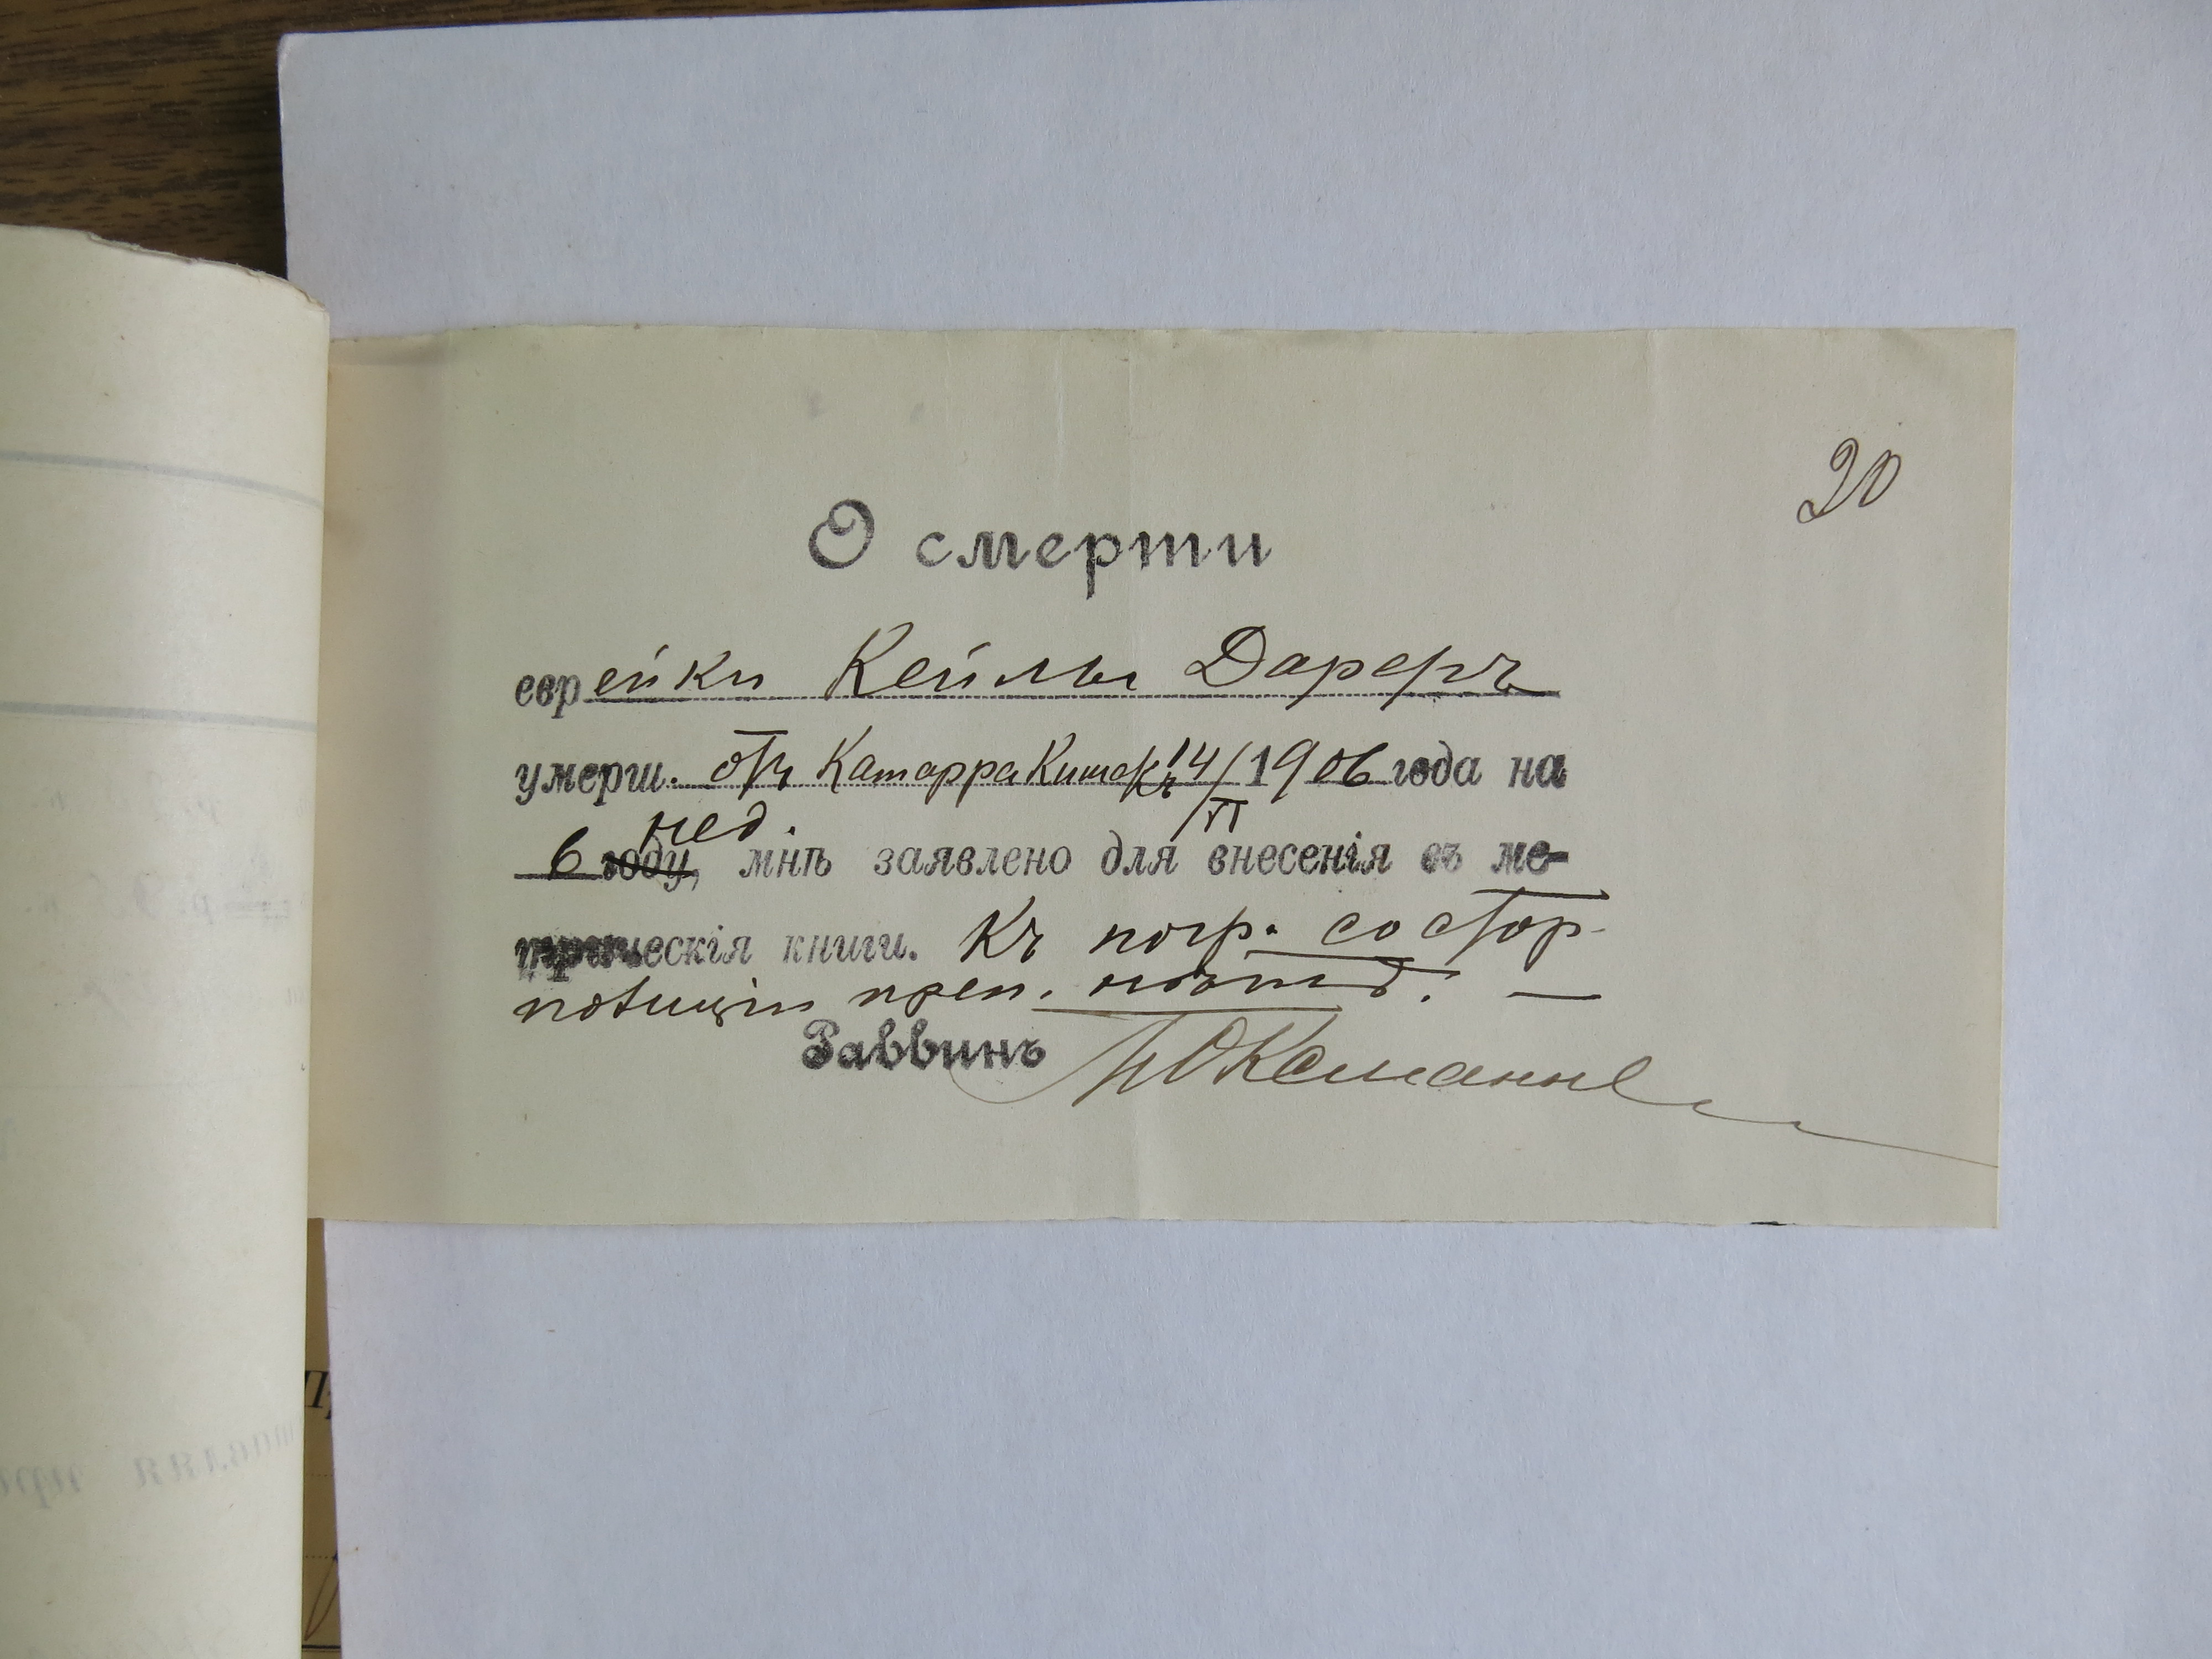 20
О смерти
еврейки Кейлы Дареръ
умерш. отъ Катарра Кишекъ 14/VI 1906 года на
6 году, нед. мнѣ заявлено для внесенія въ ме-
трическія книги. Къ погр. со стор.
полиціи преп.
Раввинъ